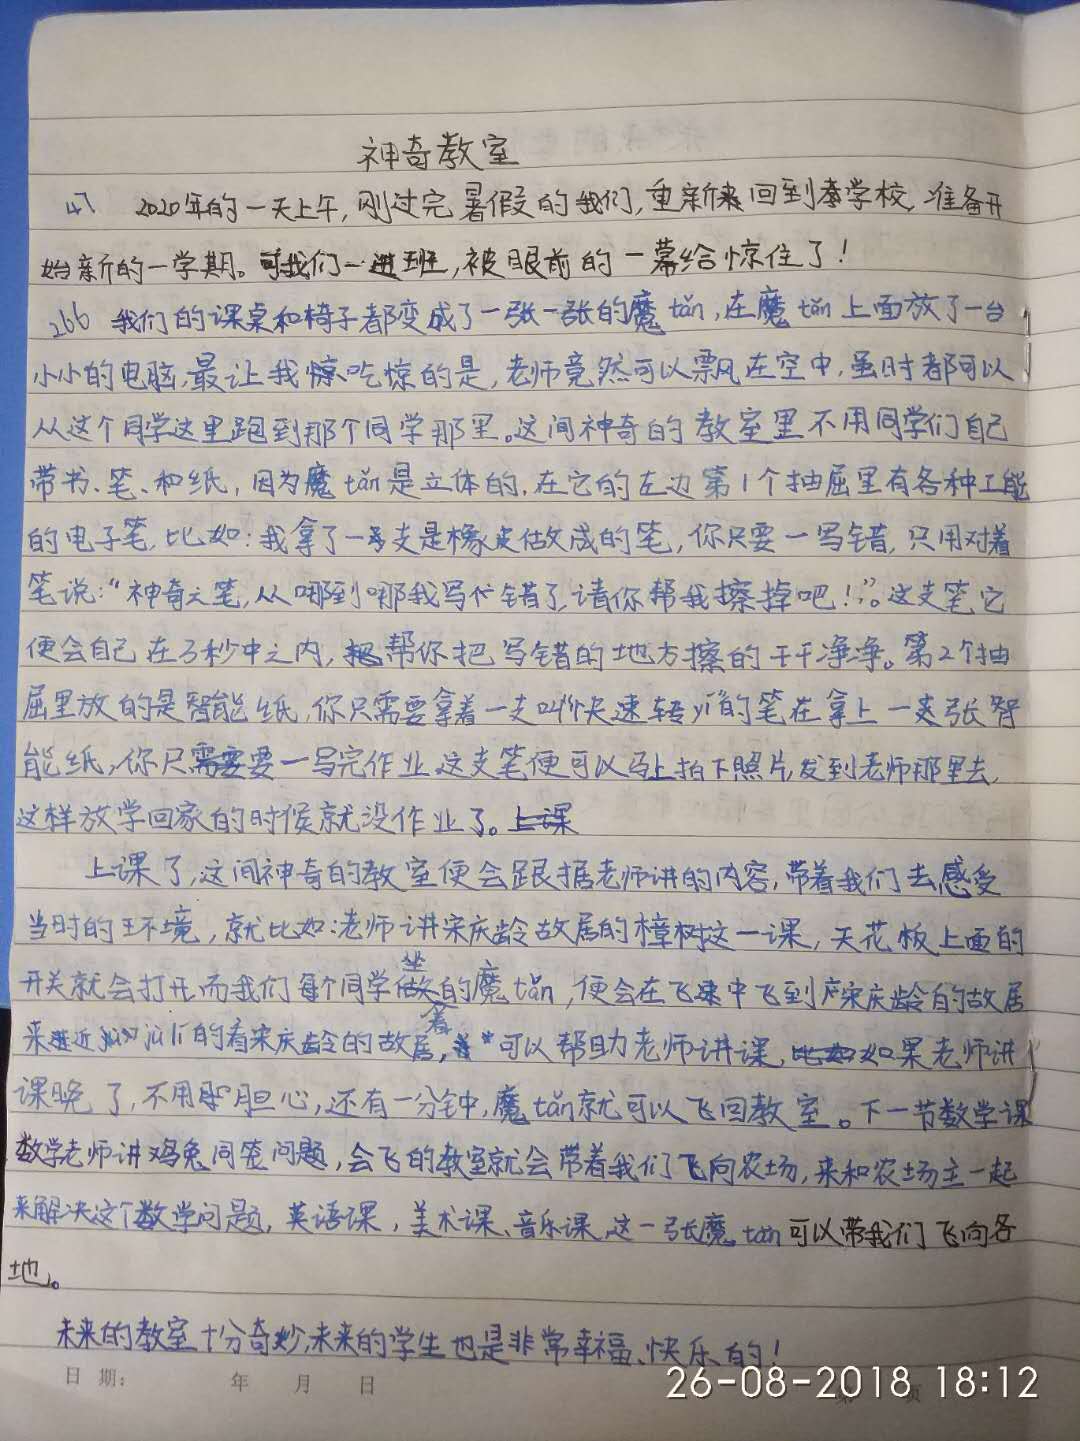 神奇教室
47 2020年的一天上午,刚过完暑假的我们,重新回到学校,准备开
始新的一学期。可我们一进班,被眼前的一幕给惊住了!
266 我们的课桌和椅子都变成了一张一张的魔tǎn,在魔tǎn上面放了一台
小小的电脑,最让我吃惊的是,老师竟然可以飘在空中,虽时都可以
从这个同学这里跑到那个同学那里。这间神奇的教室里不用同学们自己
带书、笔、和纸,因为魔tǎn是立体的,在它的左边第1个抽屉里有各种工能
的电子笔,比如:我拿了一支是橡皮做成的笔,你只要一写错,只用对着
笔说:“神奇之笔,从哪到哪我写错了,请你帮我擦掉吧!”。这支笔它
便会自己在3秒中之内,帮你把写错的地方擦的干干净净。第2个抽
屉里放的是智能纸,你只需要拿着一支叫个快速转yí的笔在拿上一张智
能纸,你只需要一写完作业,这支笔便可以马上拍下照片,发到老师那里去,
这样放学回家的时候就没作业了。
上课了,这间神奇的教室便会跟据老师讲的内容,带着我们去感受
当时的环境,就比如:老师讲宋庆龄故居的樟树这一课,天花板上面的
开关就会打开,而我们每个同学坐的魔tǎn,便会在飞速中飞到宋庆龄的故居
来近jù lí的看着宋庆龄的故居,可以帮助老师讲课,如果老师讲
课晚了,不用胆心,还有一分钟,魔tǎn就可以飞回教室。下一节数学课
数学老师讲鸡兔同笼问题,会飞的教室就会带着我们飞向农场,来和农场主一起
来解决这个数学问题,英语课,美术课、音乐课,这一张魔tǎn可以带我们飞向各
地。
未来的教室十分奇妙,未来的学生也是非常幸福、快乐的!
日期: 年 月 日
26-08-2018 18:12
页